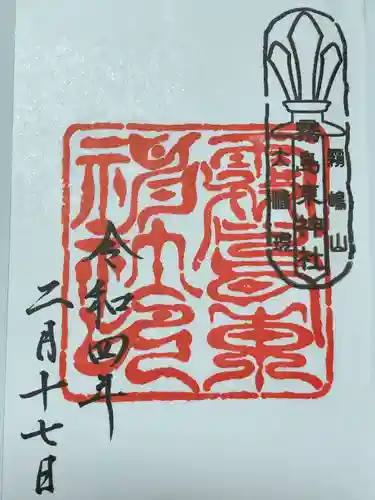 霧嶋山
霧島東神社
大幡現
霧島東
神社印
令和四年
二月十七日